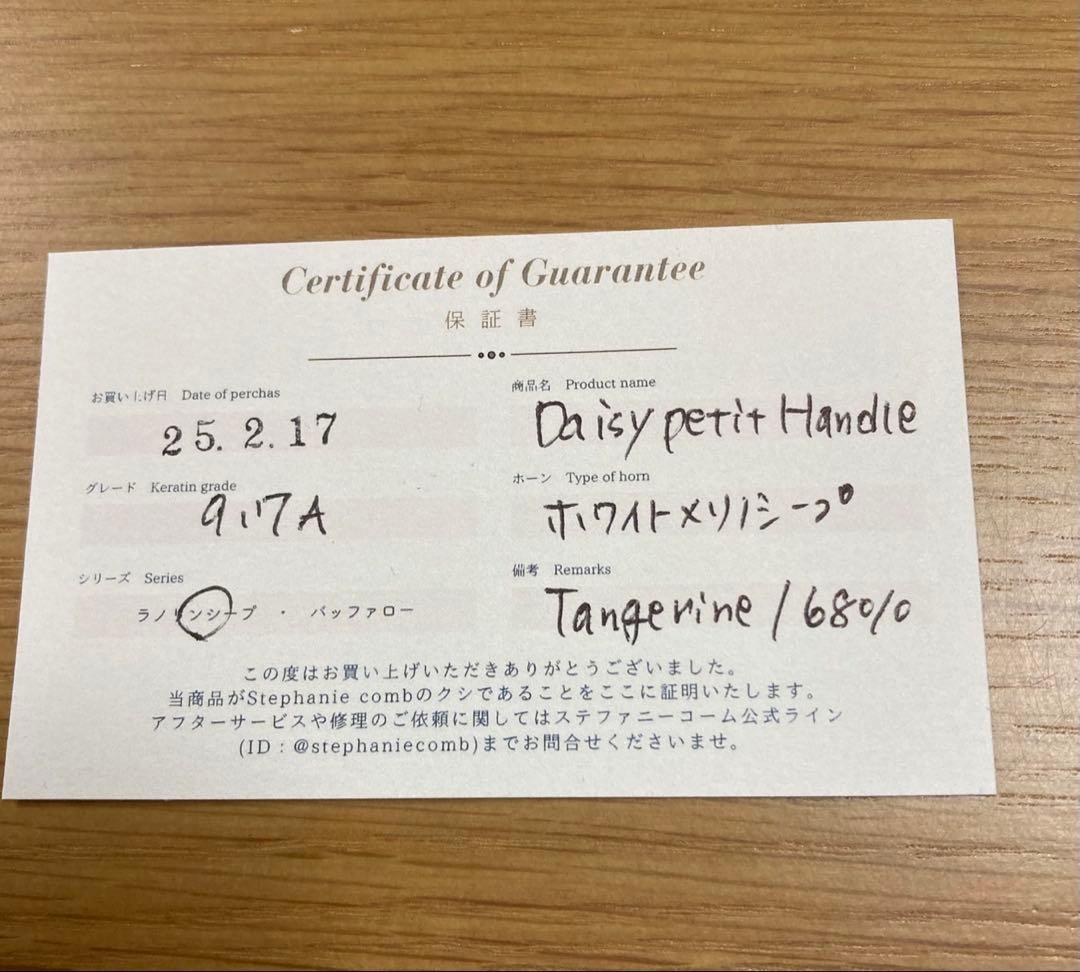 Certificate of Guarantee
保証書
お買い上げ日 Date of perchas
25.2.17
商品名 Product name
Daisy petit Handle
グレード Keratin grade
917A
ホーン Type of horn
ホワイトメリノシープ
シリーズ Series
ラノリンシープ ・ バッファロー
備考 Remarks
Tangerine / 68%
この度はお買い上げいただきありがとうございました。
当商品がStephanie combのクシであることをここに証明いたします。
アフターサービスや修理のご依頼に関してはステファニーコーム公式ライン
(ID : @stephaniecomb)までお問合せくださいませ。